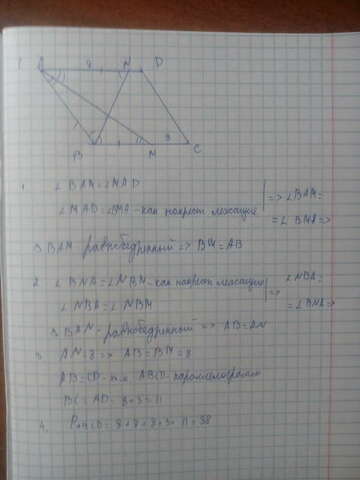 A 8 N D
B M 3 C
1. ∠BAM=∠MAD
∠MAD=∠BMA - как накрест лежащие | => ∠BAM=
=∠BMA =>
ABM равнобедренный => BM=AB
2. ∠BNA=∠NBM - как накрест лежащие | => ∠NBA=
∠NBA=∠NBM =∠BNA =>
BAN - равнобедренный => AB=AN
3. AN=8 => AB=BM=8
AB=CD - т.к ABCD параллелограмм
BC=AD= 8+3=11
4. PABCD= 8+8+8+3+11=38